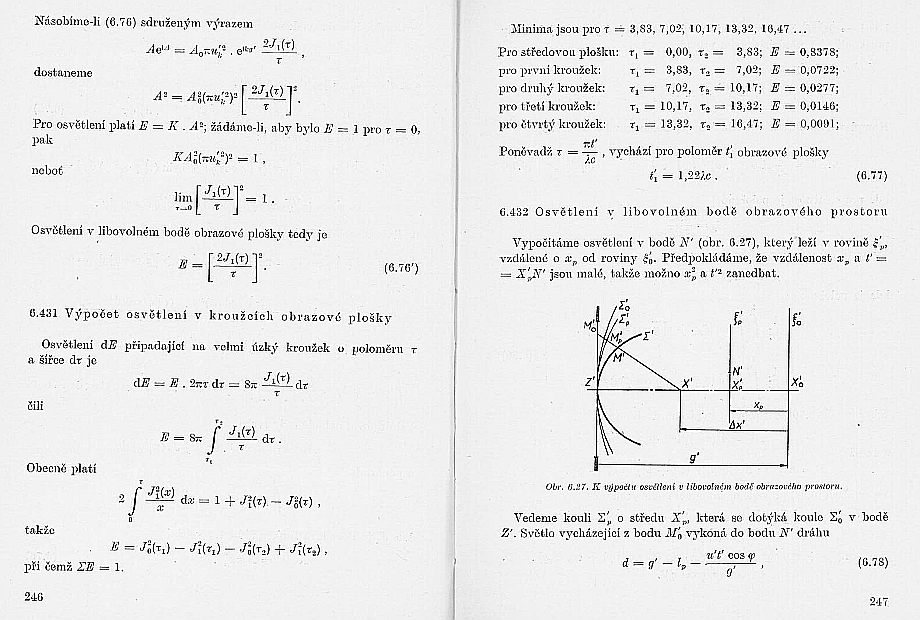 Násobíme-li (6.76) sdruženým výrazem
Ae^{iΔ} = A₀πu′ₖ² . e^{ikg′} 2J₁(τ)/τ ,
dostaneme
A² = A₀²(πu′ₖ²)² [2J₁(τ)/τ]².
Pro osvětlení platí E = K . A²; žádáme-li, aby bylo E = 1 pro τ = 0,
pak
KA₀²(πu′ₖ²)² = 1 ,
neboť
lim τ→0 [J₁(τ)/τ]² = 1 .
Osvětlení v libovolném bodě obrazové plošky tedy je
E = [2J₁(τ)/τ]². (6.76′)
6.431 Výpočet osvětlení v kroužcích obrazové plošky
Osvětlení dE připadající na velmi úzký kroužek o poloměru τ
a šířce dτ je
dE = E . 2πτ dτ = 8π J₁(τ)/τ dτ
čili
E = 8π ∫_{τ₁}^{τ₂} J₁(τ)/τ dτ .
Obecně platí
2 ∫_{0}^{τ} J₁²(x)/x dx = 1 + J₁²(τ) − J₀²(τ) ,
takže
E = J₀²(τ₁) − J₁²(τ₁) − J₀²(τ₂) + J₁²(τ₂) ,
při čemž ΣE = 1.
246
Minima jsou pro τ = 3,83, 7,02, 10,17, 13,32, 16,47 ...
Pro středovou plošku: τ₁ = 0,00, τ₂ = 3,83; E = 0,8378;
pro první kroužek: τ₁ = 3,83, τ₂ = 7,02; E = 0,0722;
pro druhý kroužek: τ₁ = 7,02, τ₂ = 10,17; E = 0,0277;
pro třetí kroužek: τ₁ = 10,17, τ₂ = 13,32; E = 0,0146;
pro čtvrtý kroužek: τ₁ = 13,32, τ₂ = 16,47; E = 0,0091;
Poněvadž τ = πt′/λc , vychází pro poloměr t′₁ obrazové plošky
t′₁ = 1,22λc . (6.77)
6.432 Osvětlení v libovolném bodě obrazového prostoru
Vypočítáme osvětlení v bodě N′ (obr. 6.27), který leží v rovině ξ′ₚ,
vzdálené o xₚ od roviny ξ′₀. Předpokládáme, že vzdálenost xₚ a t′ =
= X′ₚN′ jsou malé, takže možno xₚ² a t′² zanedbat.
Σ′₀
Σ′ₚ
Σ′
M′₀
M′ₚ
M′
ξ′ₚ
ξ′₀
N′
Z′
X′
X′ₚ
X′₀
xₚ
Δx′
g′
Obr. 6.27. K výpočtu osvětlení v libovolném bodě obrazového prostoru.
Vedeme kouli Σ′ₚ o středu X′ₚ, která se dotýká koule Σ′₀ v bodě
Z′. Světlo vycházející z bodu M′₀ vykoná do bodu N′ dráhu
d = g′ − lₚ − u′t′ cos φ/g′ , (6.78)
247